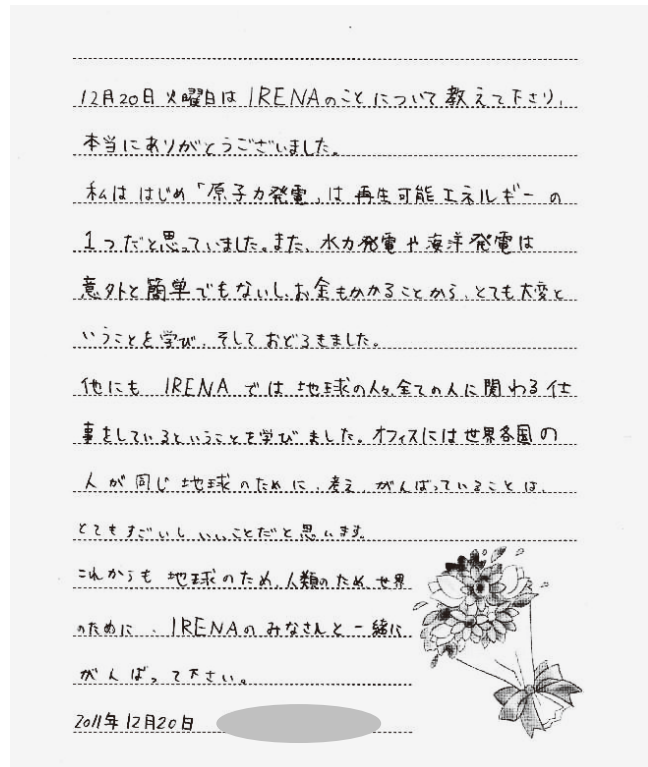 12月20日火曜日はIRENAのことについて教えて下さり、
本当にありがとうございました。
私ははじめ「原子力発電」は再生可能エネルギーの
1つだと思っていました。また、水力発電や海洋発電は
意外と簡単でもないし、お金もかかることから、とても大変と
いうことを学び、そしておどろきました。
他にも IRENA では地球の人々全ての人に関わる仕
事をしているということを学びました。オフィスには世界各国の
人が同じ地球のために、考え、がんばっていることは、
とてもすごいしいいことだと思います。
これからも地球のため、人類のため、世界
のために、IRENAのみなさんと一緒に
がんばって下さい。
2011年12月20日